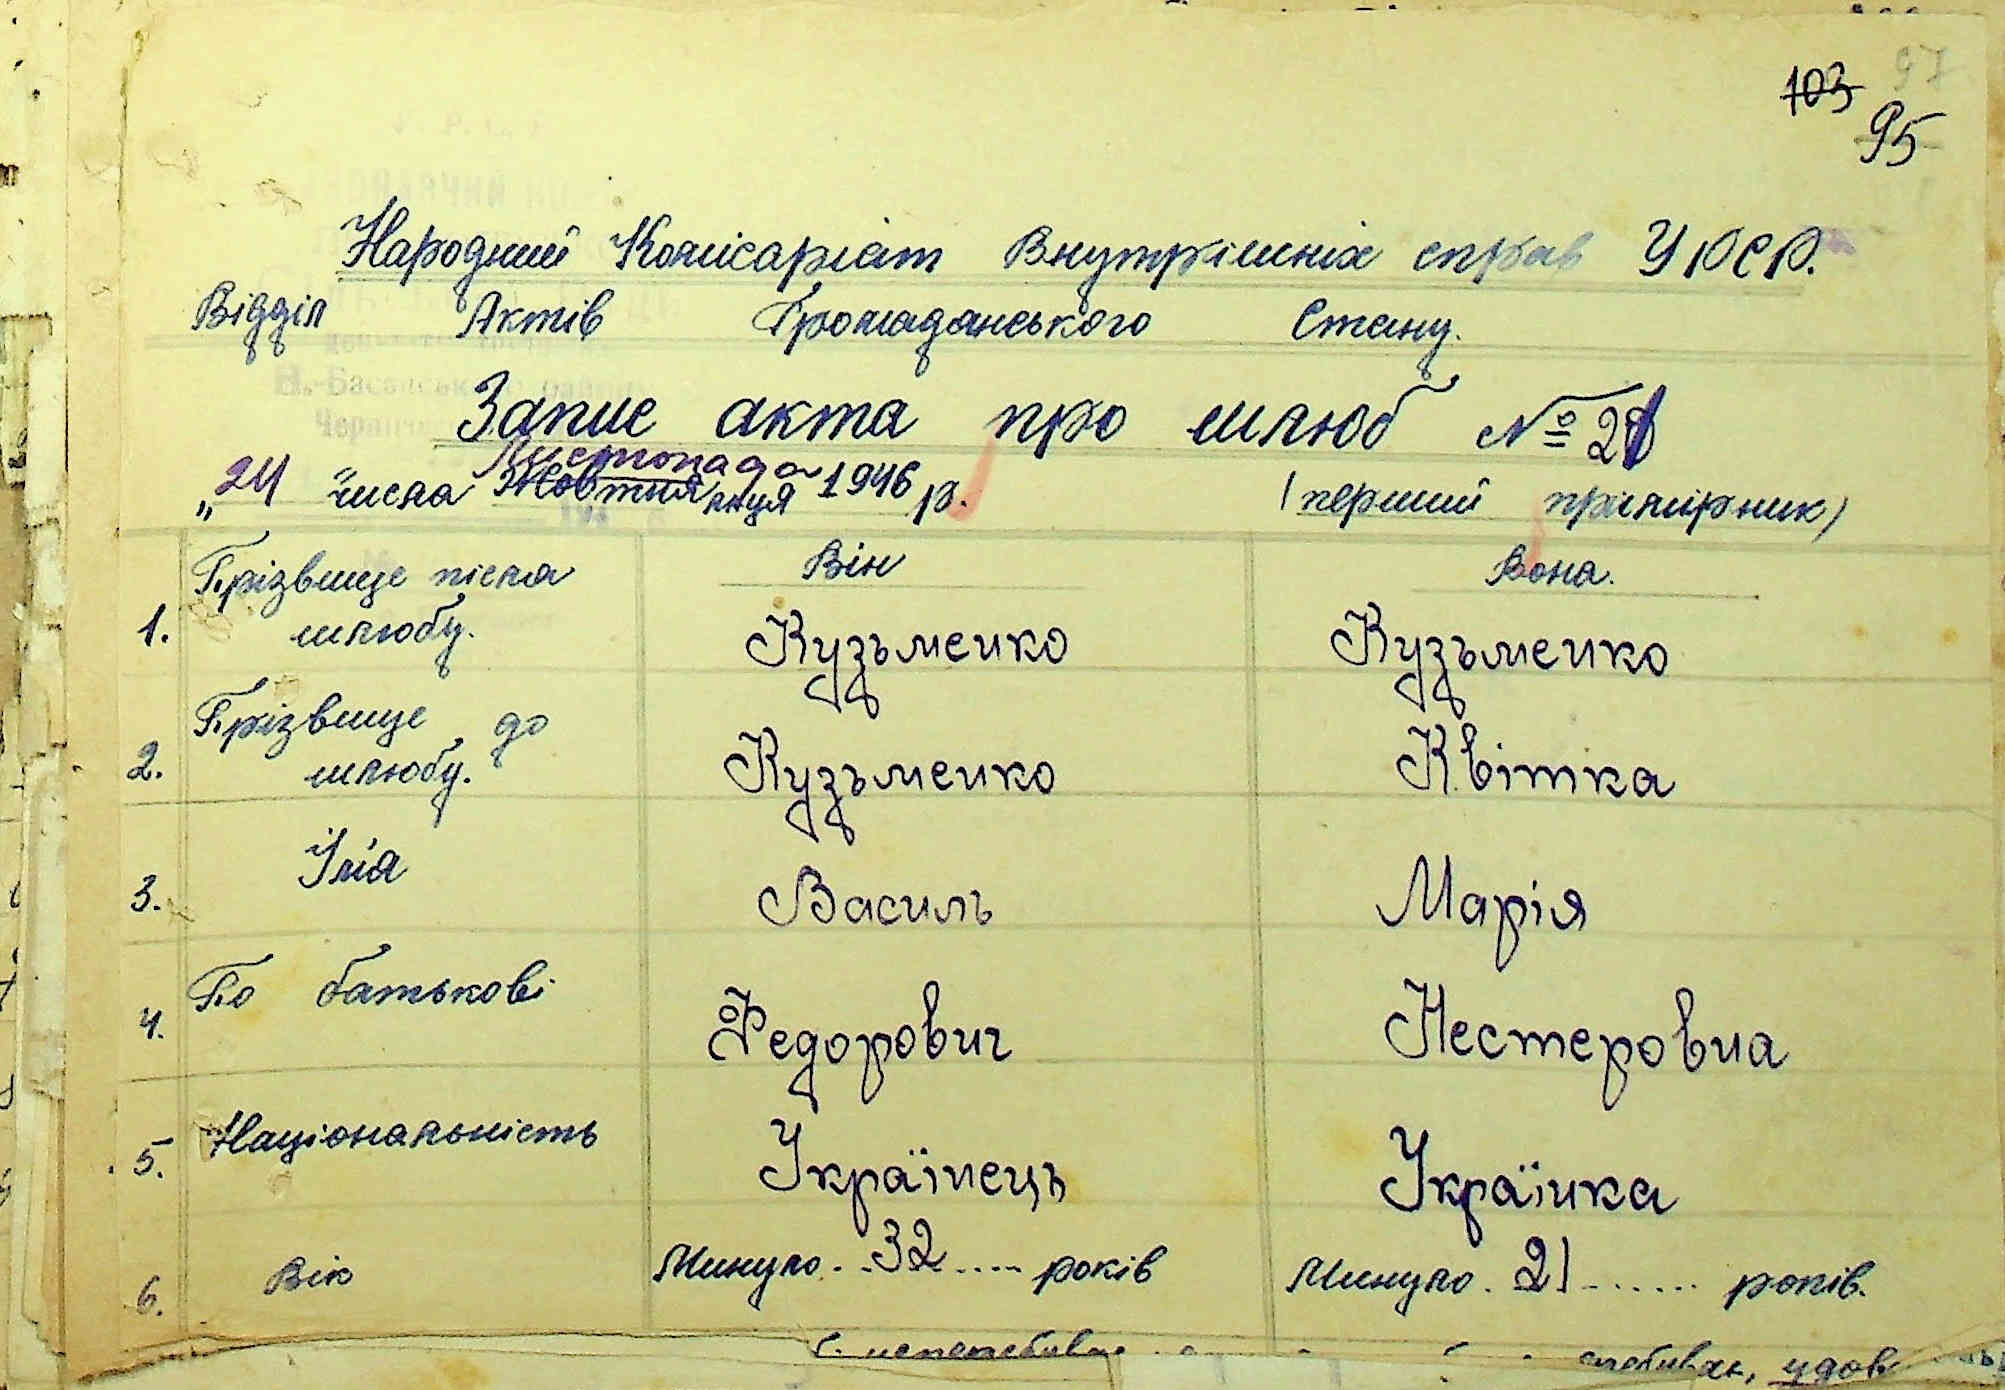 97
103
95
Народний Комісаріат Внутрішніх справ УРСР.
Відділ Актів Громадянського Стану.
Запис акта про шлюб № 21
Листопада
„24" числа Жовтня м-ця 1946 р. (перший примірник)
Прізвище після шлюбу. Він Вона.
1. Кузьменко Кузьменко
2. Прізвище до шлюбу. Кузьменко Квітка
3. Імя Василь Марія
4. По батькові Федорович Нестеровна
5. Національність Українець Українка
6. Вік Минуло 32 років Минуло 21 років.